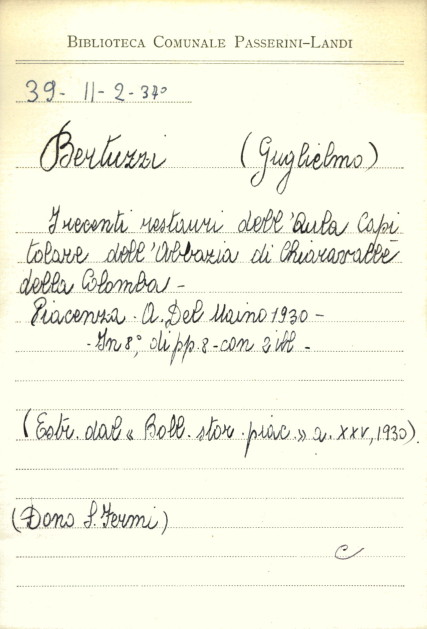 BIBLIOTECA COMUNALE PASSERINI-LANDI
39- II-2-37º
Bertuzzi (Guglielmo)
I recenti restauri dell'Aula Capi
tolare dell'Abbazia di Chiaravalle
della Colomba -
Piacenza - A. Del Maino 1930 -
- In 8°, di pp. 8 - con 2 ill -
(Estr. dal « Boll. stor. piac. » a. XXV, 1930).
(Dono S. Fermi)
C